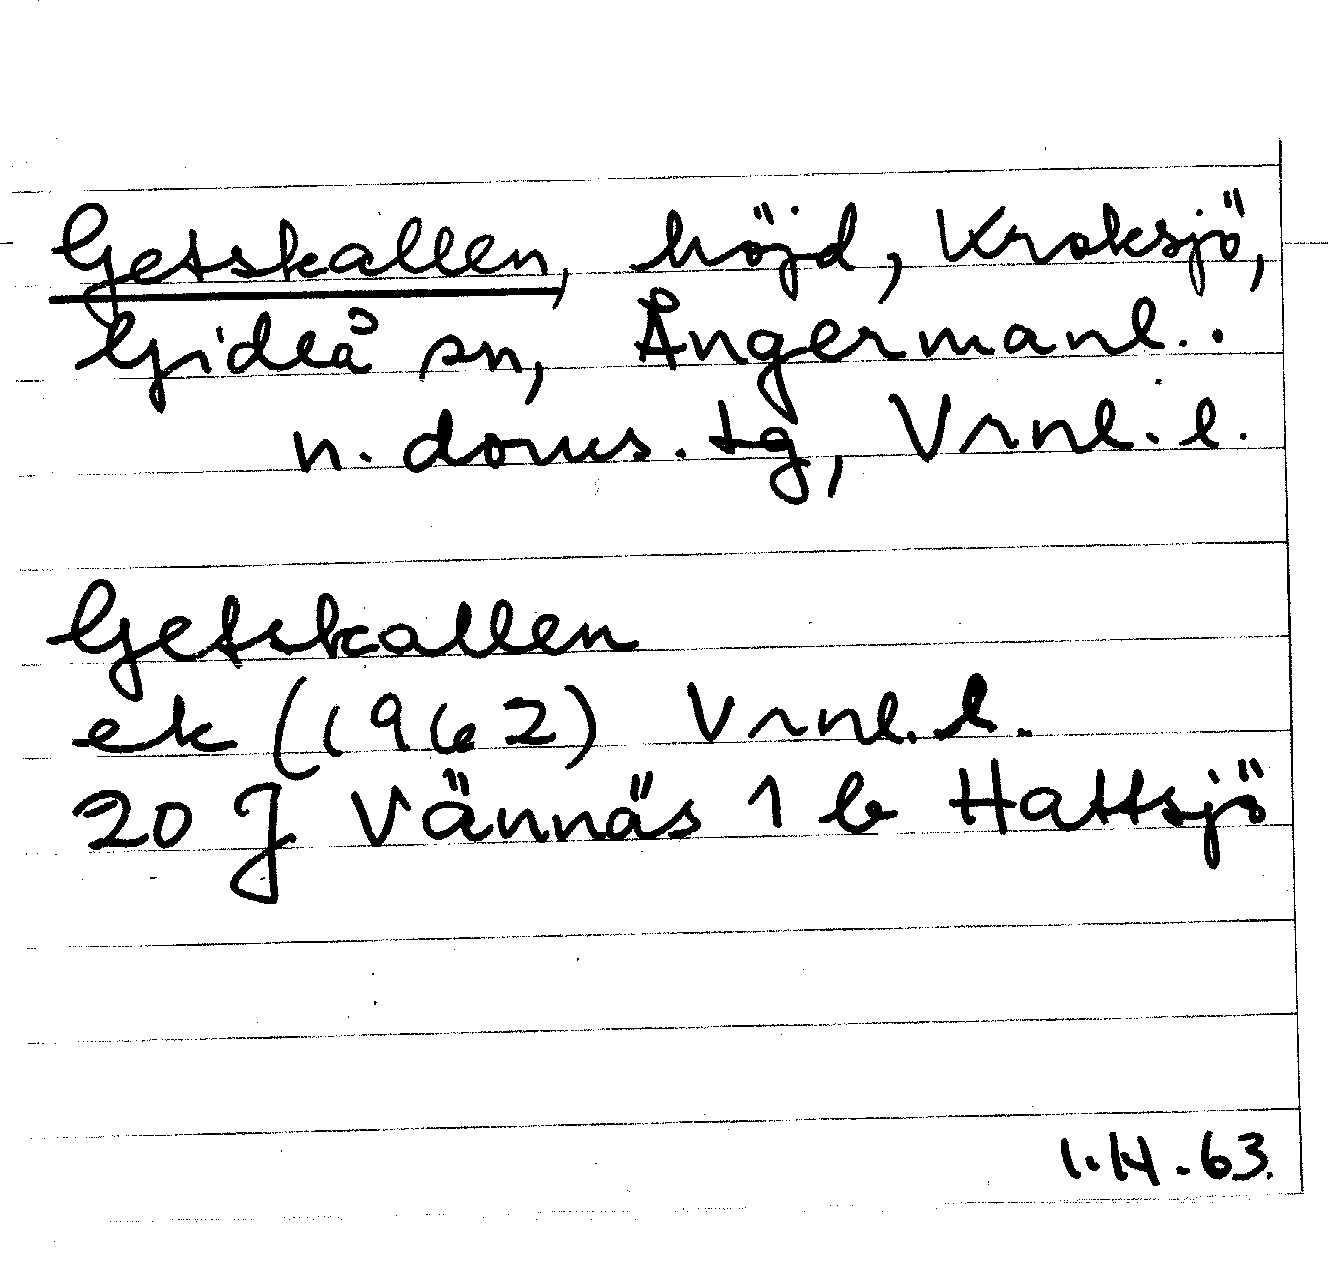 Getskallen, höjd, Kroksjö,
Gideå sn, Ångermanl..
n. doms. tg, Vrnl. l.
Getskallen
ek (1962) Vrnl. l.
20 J Vännäs 1 b Hattsjö
1.H.63.